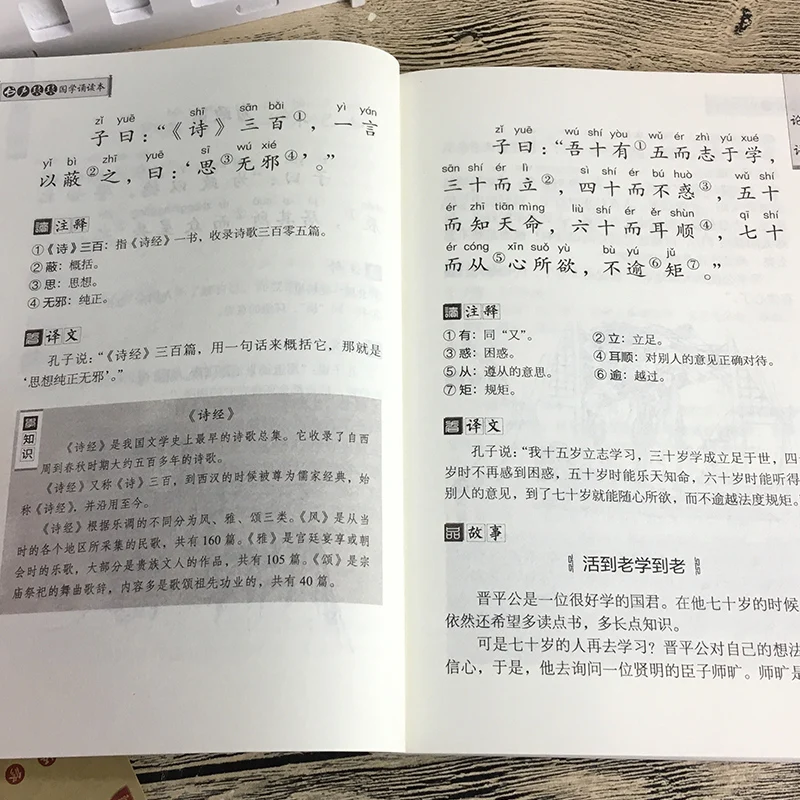 国学诵读本
zǐ yuē shī sān bǎi yì yán
子曰：“《诗》三百①，一言
yǐ bì zhī sī wú xié
以蔽②之，曰：‘思③无邪④’。”
注释
①《诗》三百：指《诗经》一书，收录诗歌三百零五篇。
②蔽：概括。
③思：思想。
④无邪：纯正。
译文
孔子说：“《诗经》三百篇，用一句话来概括它，那就是
‘思想纯正无邪’。”
知识
《诗经》
《诗经》是我国文学史上最早的诗歌总集。它收录了自西
周到春秋时期大约五百多年的诗歌。
《诗经》又称《诗》三百，到西汉的时候被尊为儒家经典，始
称《诗经》，并沿用至今。
《诗经》根据乐调的不同分为风、雅、颂三类。《风》是从当
时的各个地区所采集的民歌，共有160篇。《雅》是宫廷宴享或朝
会时的乐歌，大部分是贵族文人的作品，共有105篇。《颂》是宗
庙祭祀的舞曲歌辞，内容多是歌颂祖先功业的，共有40篇。
论
zǐ yuē wú shí yòu wǔ ér zhì yú xué
子曰：“吾十有①五而志于学，
sān shí ér lì sì shí ér bú huò wǔ shí
三十而立②，四十而不惑③，五十
ér zhī tiān mìng liù shí ér ěr shùn qī shí
而知天命，六十而耳顺④，七十
ér cóng xīn suǒ yù bù yú jǔ
而从⑤心所欲，不逾⑥矩⑦。”
注释
①有：同“又”。 ②立：立足。
③惑：困惑。 ④耳顺：对别人的意见正确对待。
⑤从：遵从的意思。 ⑥逾：越过。
⑦矩：规矩。
译文
孔子说：“我十五岁立志学习，三十岁学成立足于世，四
岁时不再感到困惑，五十岁时能乐天知命，六十岁时能听得
别人的意见，到了七十岁就能随心所欲，而不逾越法度规矩。
故事
活到老学到老
晋平公是一位很好学的国君。在他七十岁的时候
依然还希望多读点书，多长点知识。
可是七十岁的人再去学习？晋平公对自己的想法
信心，于是，他去询问一位贤明的臣子师旷。师旷是